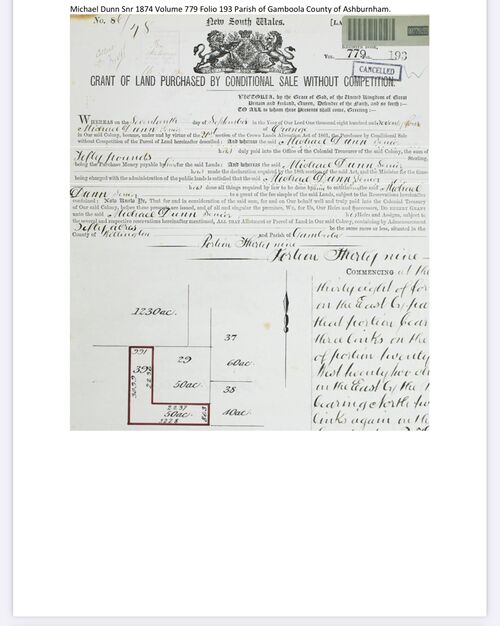 Michael Dunn Snr 1874 Volume 779 Folio 193 Parish of Gamboola County of Ashburnham.
No. 
New South Wales.
[LA
VOL. 779 193
CANCELLED
GRANT OF LAND PURCHASED BY CONDITIONAL SALE WITHOUT COMPETITION.
VICTORIA, by the Grace of God, of the United Kingdom of Great
Britain and Ireland, Queen, Defender of the Faith, and so forth:—
TO ALL to whom these Presents shall come, Greeting:—
WHEREAS on the Seventeenth day of September in the Year of Our Lord One thousand eight hundred and seventy four
Michael Dunn Senior of Orange
in Our said Colony, became, under and by virtue of the 21st section of the Crown Lands Alienation Act of 1861, the Purchaser by Conditional Sale
without Competition of the Parcel of Land hereinafter described: And whereas the said Michael Dunn Senior
has duly paid into the Office of the Colonial Treasurer of the said Colony, the sum of
Fifty pounds Sterling,
being the Purchase Money payable by for the said Lands: And whereas the said Michael Dunn Senior
has made the declaration required by the 18th section of the said Act, and the Minister for the time
being charged with the administration of the public lands is satisfied that the said Michael Dunn Senior
has done all things required by law to be done to entitle the said Michael
Dunn Senior to a grant of the fee simple of the said Lands, subject to the Reservations hereinafter
contained: Now Know Ye, That for and in consideration of the said sum, for and on Our behalf well and truly paid into the Colonial Treasury
of Our said Colony, before these presents are issued, and of all and singular the premises, We, for Us, Our Heirs and Successors, DO HEREBY GRANT
unto the said Michael Dunn Senior his Heirs and Assigns, subject to
the several and respective reservations hereinafter mentioned, ALL THAT Allotment or Parcel of Land in Our said Colony, containing by Admeasurement
Fifty acres be the same more or less, situated in the
County of Wellington and Parish of Gamboola
Portion Thirty nine
Portion Thirty nine
COMMENCING at the
thirty eight of for
on the East by pa
that portion bear
three links on the
of portion twenty
West twenty two
in the East by the
bearing North fo
links again on the
1230ac.
37
60ac.
991
39
29
50ac.
38
2237
50ac.
3228
40ac.